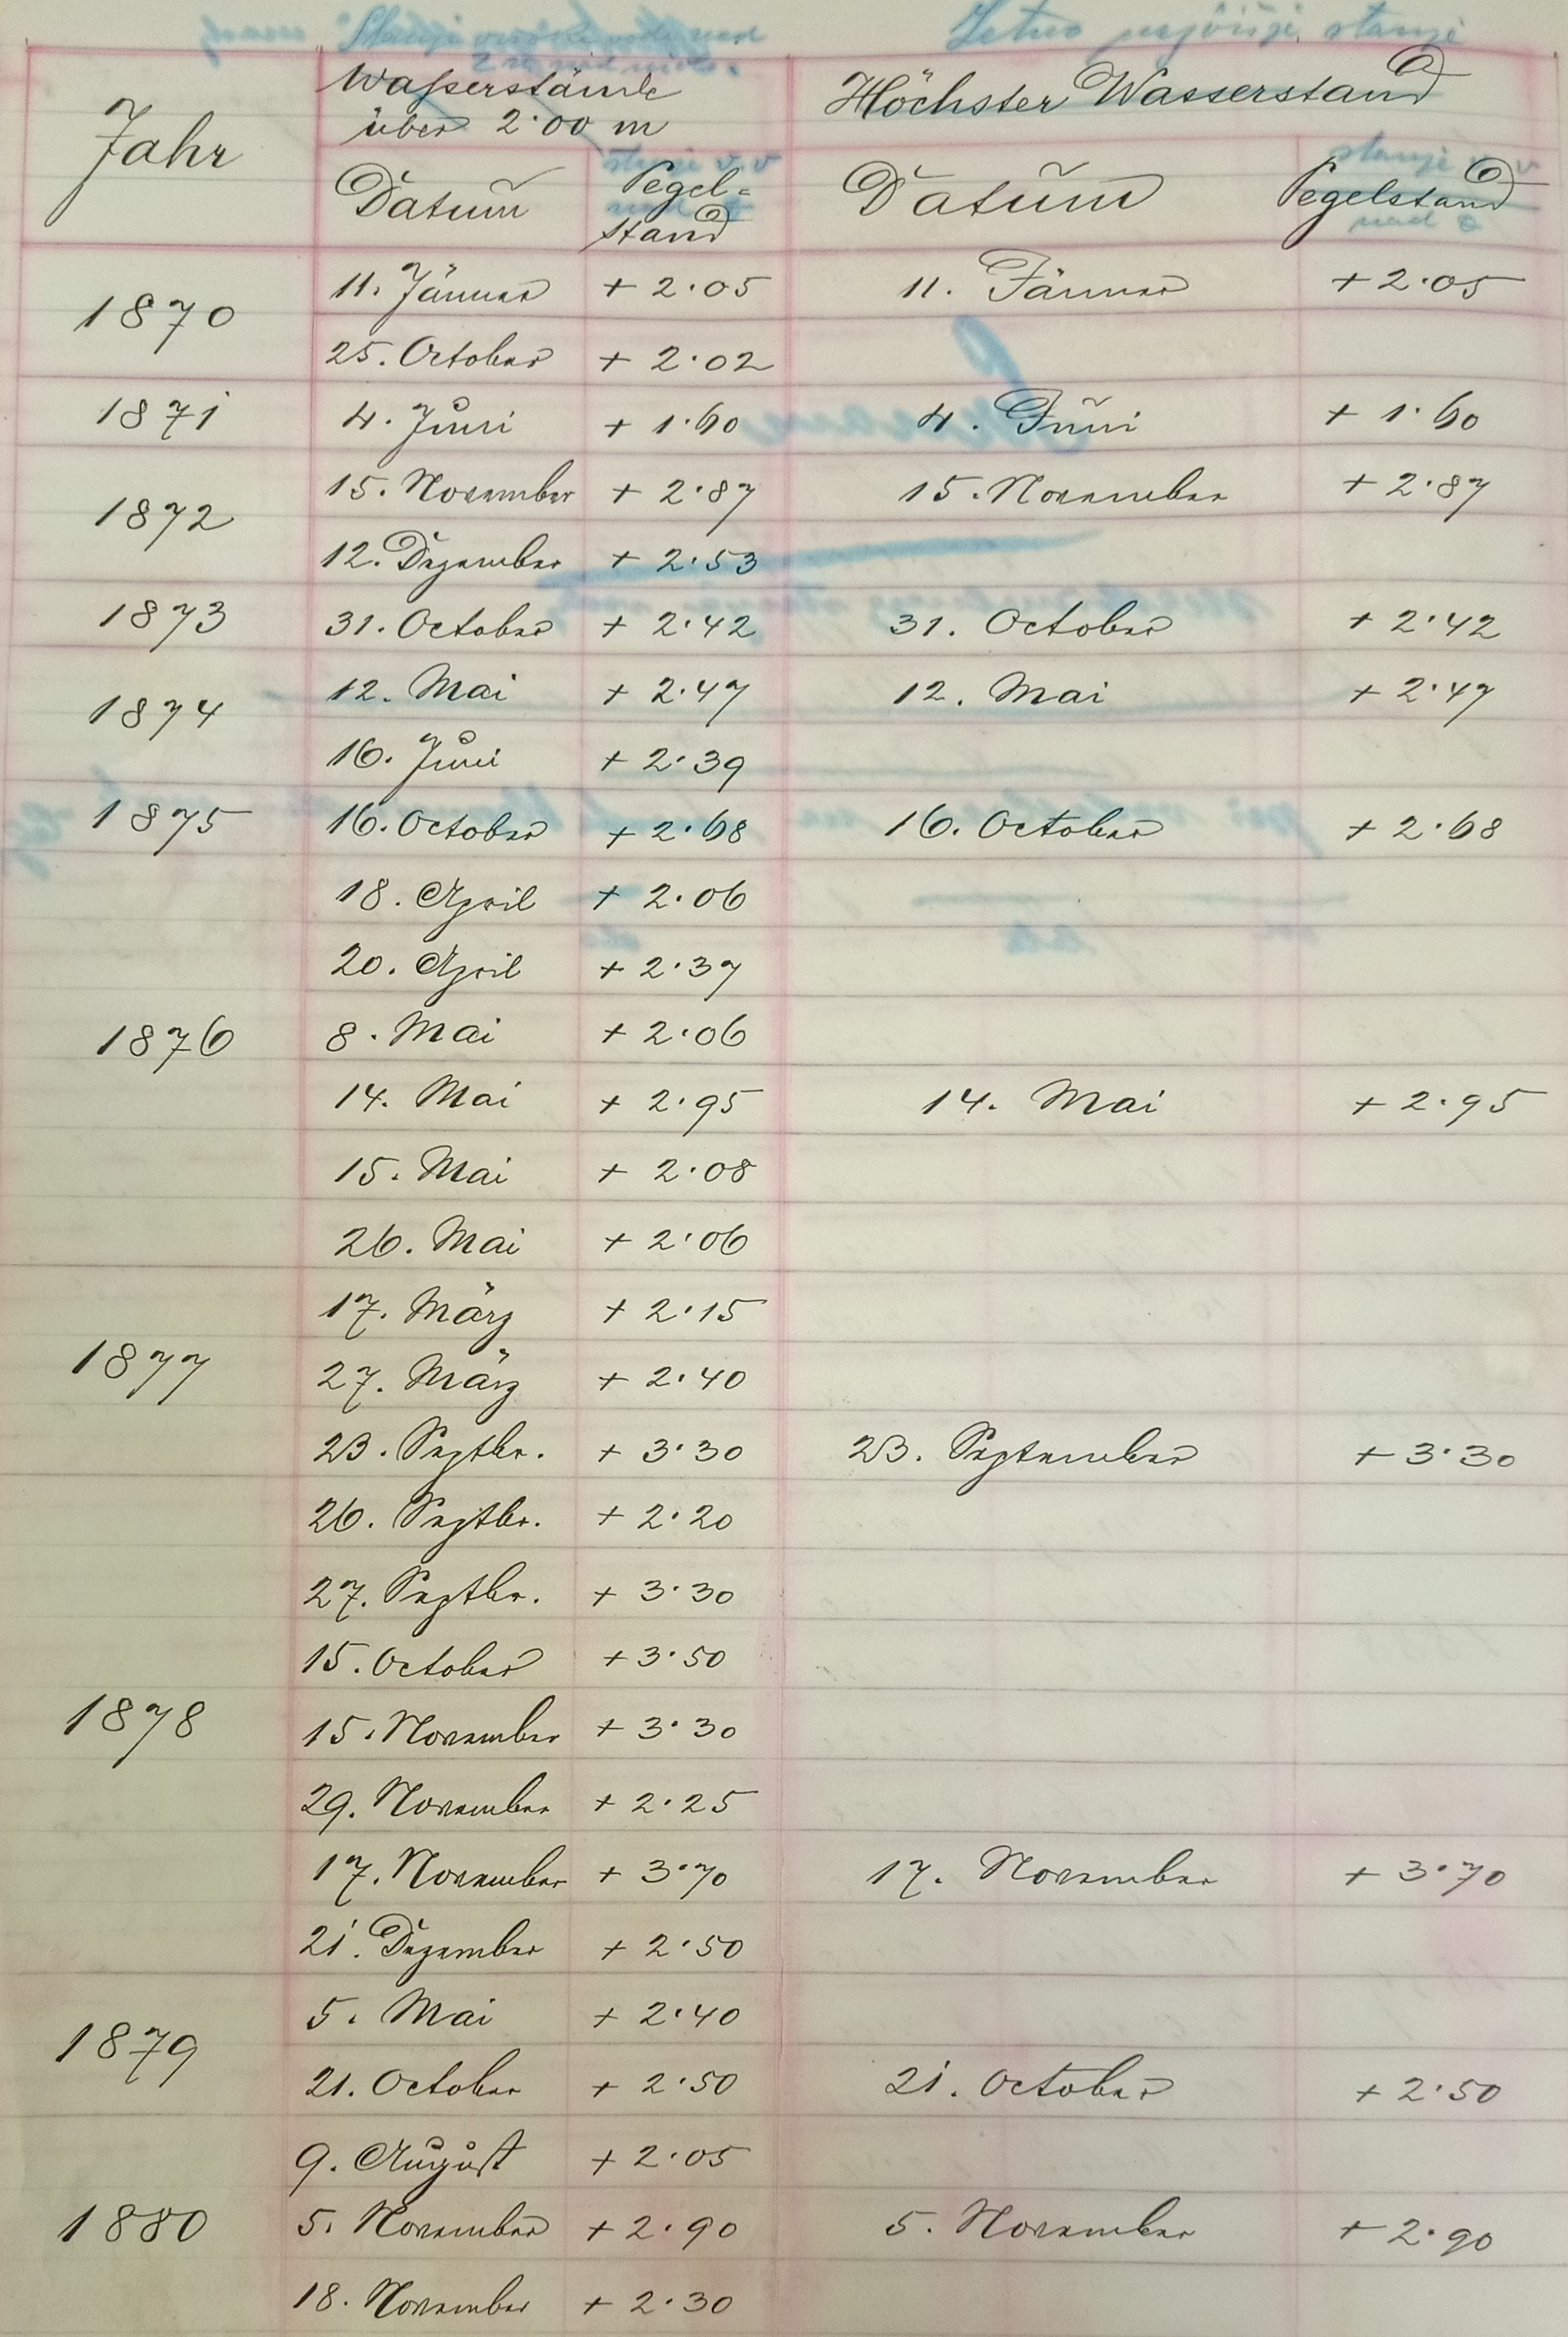 Letno najvišje stanje
Jahr
Wasserstände
über 2·00 m
Höchster Wasserstand
Datum
Pegel-
stand
Datum
Pegelstand
stanje v. v
nad 0
1870
11. Jänner + 2·05 11. Jänner + 2·05
25. October + 2·02
1871 4. Juni + 1·60 4. Juni + 1·60
1872
15. November + 2·87 15. November + 2·87
12. Dezember + 2·53
1873 31. October + 2·42 31. October + 2·42
1874
12. Mai + 2·47 12. Mai + 2·47
16. Juni + 2·39
1875 16. October + 2·68 16. October + 2·68
18. April + 2·06
20. April + 2·37
1876 8. Mai + 2·06
14. Mai + 2·95 14. Mai + 2·95
15. Mai + 2·08
26. Mai + 2·06
17. März + 2·15
1877 27. März + 2·40
23. Septbr. + 3·30 23. September + 3·30
26. Septbr. + 2·20
27. Septbr. + 3·30
15. October + 3·50
1878 15. November + 3·30
29. November + 2·25
17. November + 3·70 17. November + 3·70
21. Dezember + 2·50
1879
5. Mai + 2·40
21. October + 2·50 21. October + 2·50
9. August + 2·05
1880 5. November + 2·90 5. November + 2·90
18. November + 2·30